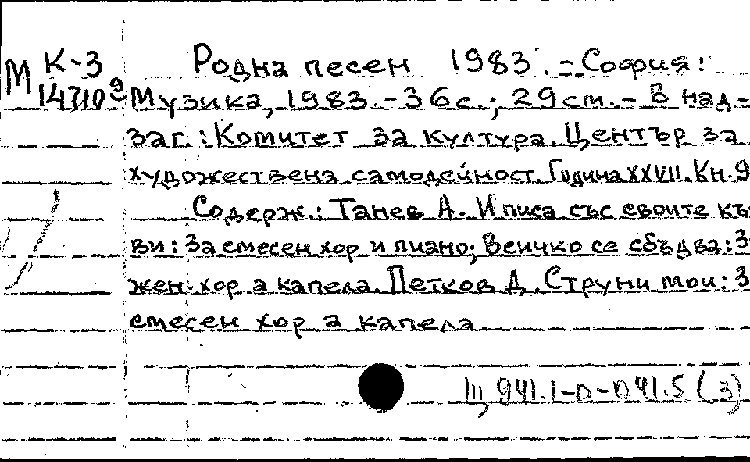 М К-3 Родна песен 1983. – София:
14710 9 Музика, 1983. – 36 с.; 29 cm. – В над-
заг.: Комитет за култура. Център за
художествена самодейност. Година XXVII. Кн. 9
Содерж.: Танев А. И писа със своите къ
ви: За смесен хор и пиано; Всичко се сбъдва: З
жен. хор а капела. Петков Д. Струни мои: З
смесен хор а капела
Щ 941.1-п-п41.5 (3)